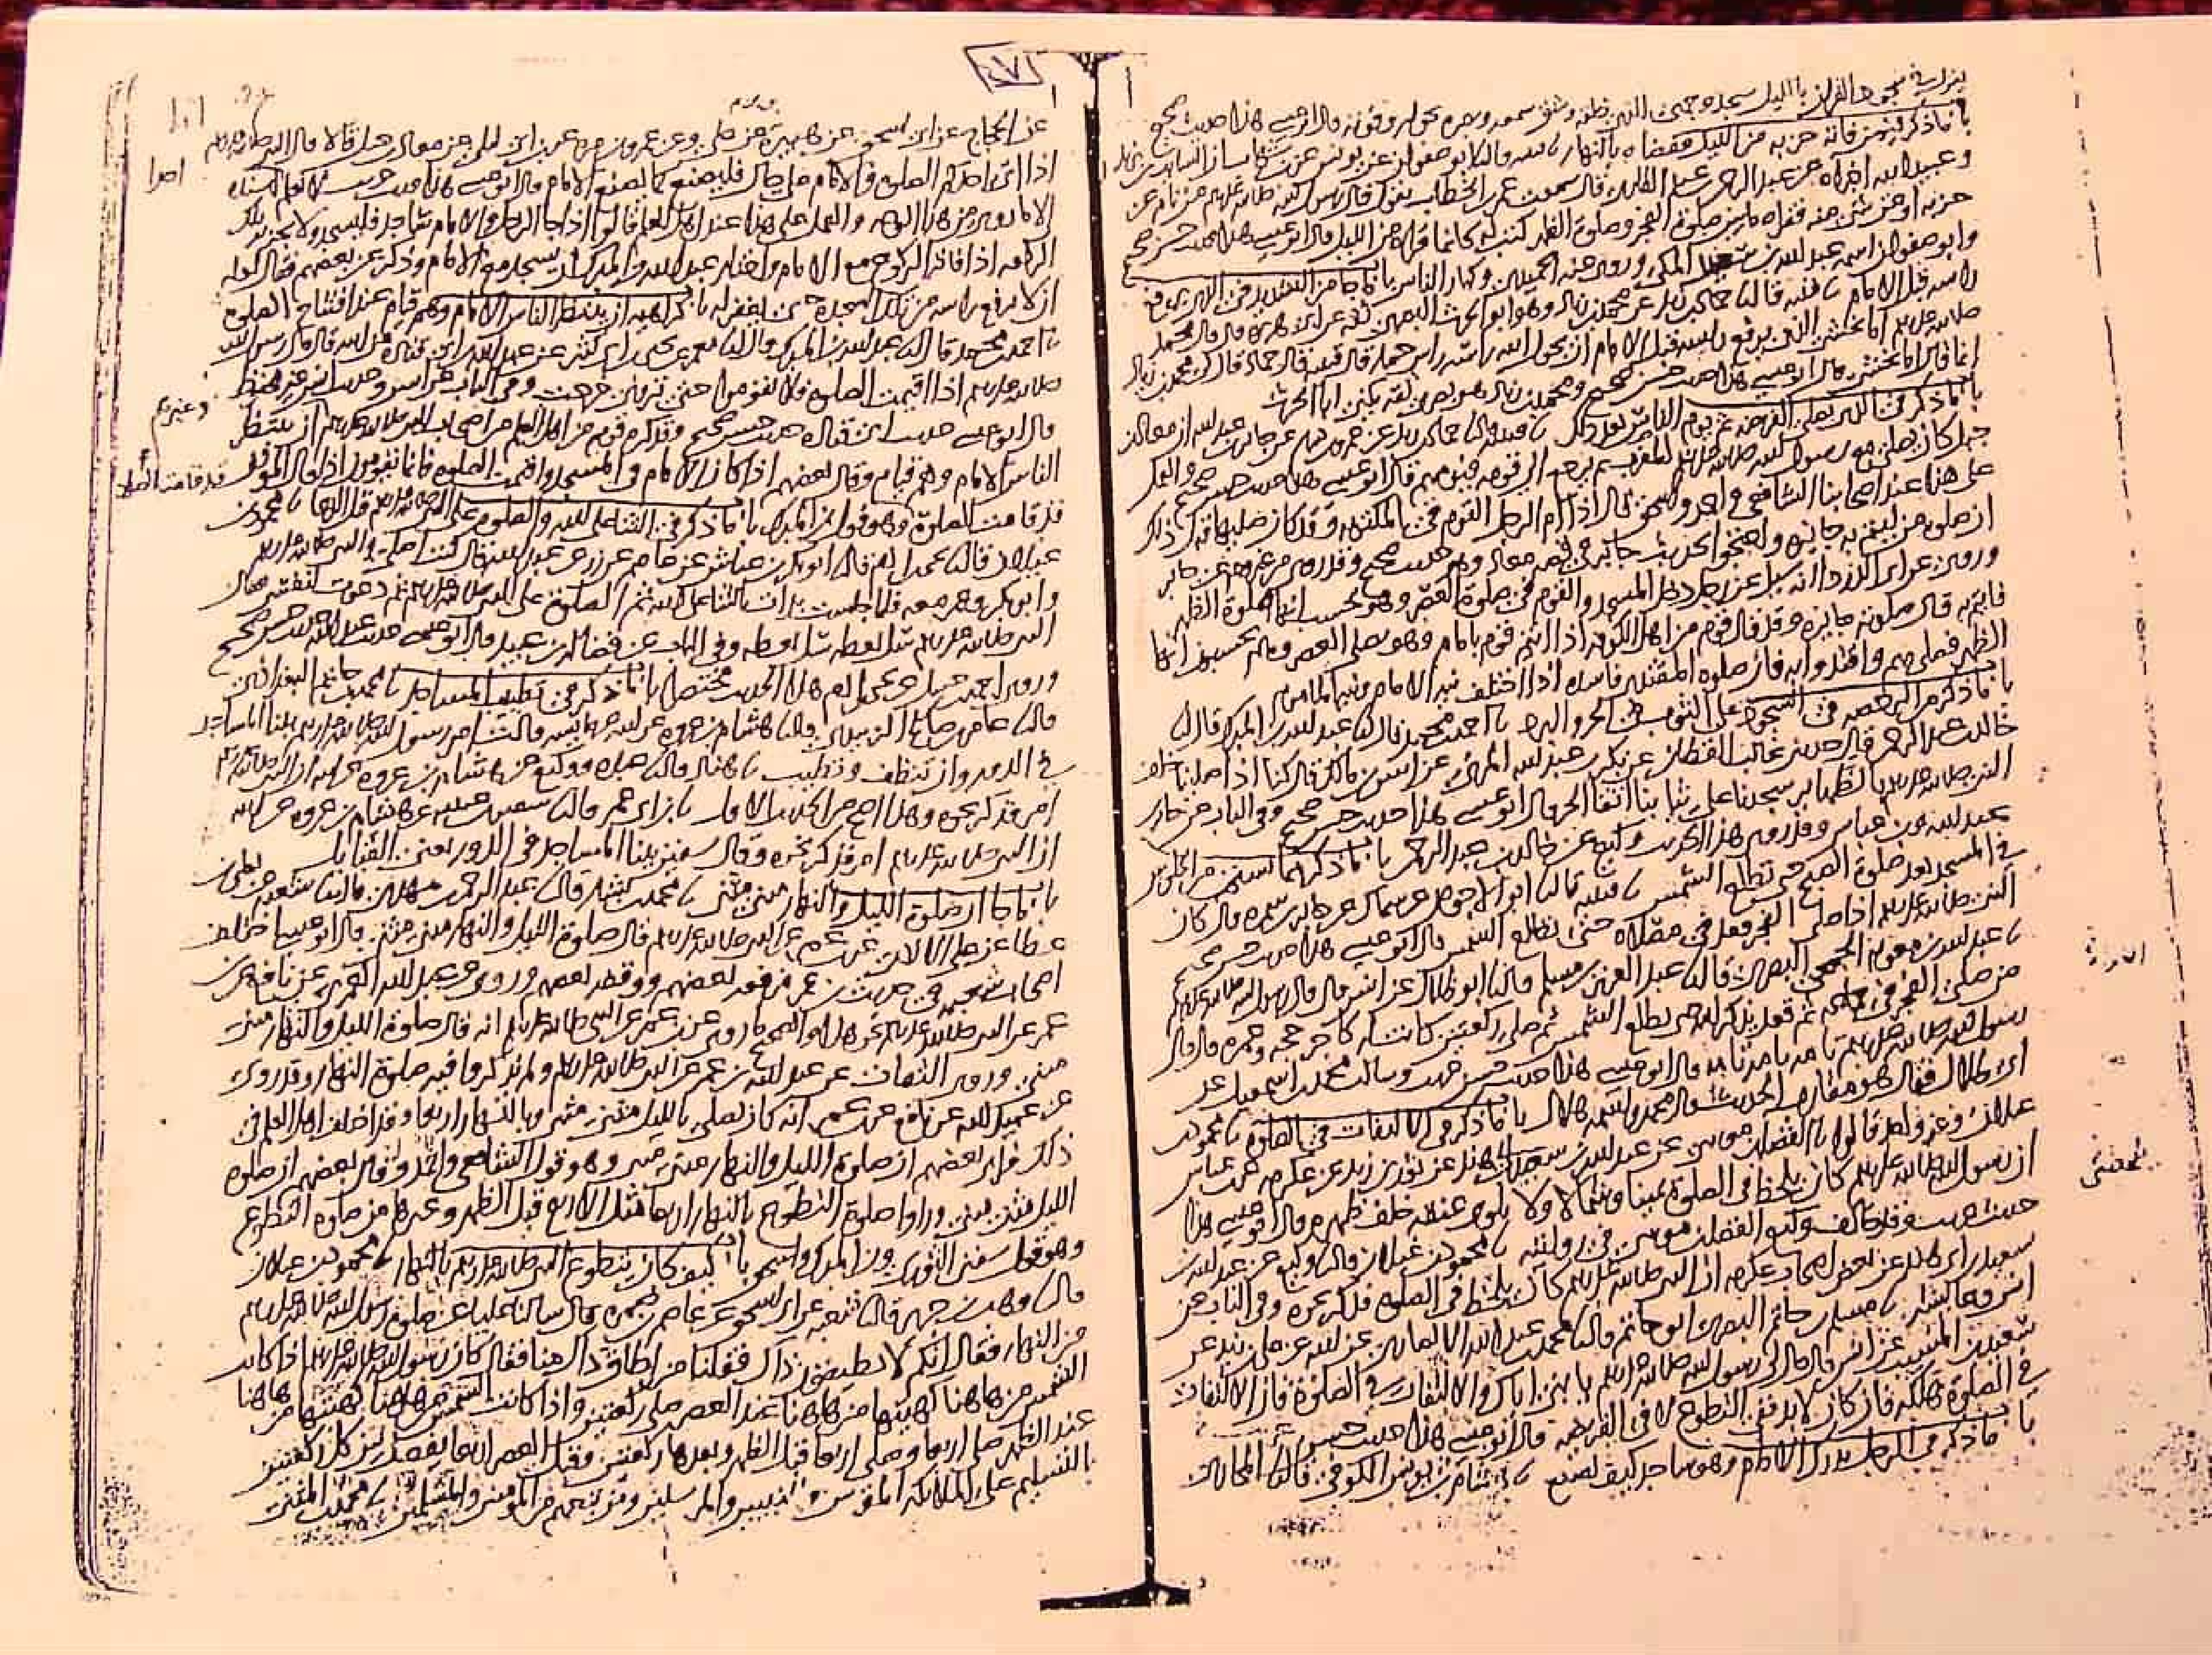 بقراه في سجود القران بالليل سجد وجهي للذي خلقه وشق سمعه وبصره بحوله وقوته قال ابو عيسى هذا حديث صحيح
باب ما ذكر فيمن فاته حزبه من الليل فقضاه بالنهار نا قتيبه قال نا ابو صفوان عن يونس عن ابن شهاب ان السايب بن يزيد
وعبيد الله اخبراه عن عبد الرحمن بن عبد القاري قال سمعت عمر بن الخطاب يقول قال رسول الله صلى الله عليه وسلم من نام عن
حزبه او عن شي منه فقراه ما بين صلوة الفجر وصلوة الظهر كتب له كانما قراه من الليل قال ابو عيسى هذا حديث حسن صحيح
وابو صفوان اسمه عبد الله بن سعيد المكي وروى عنه الحميدي وكبار الناس باب ما جا من التشديد في الذي يرفع
راسه قبل الامام نا قتيبه قال نا حماد بن زيد عن محمد بن زياد وهو ابو الحرث البصري ثقه عن ابي هريره قال قال محمد
صلى الله عليه وسلم اما يخشى الذي يرفع راسه قبل الامام ان يحول الله راسه راس حمار قال قتيبه قال حماد قال لي محمد بن زياد
انما قال اما يخشى قال ابو عيسى هذا حديث حسن صحيح ومحمد بن زياد هو بصري ثقه يكنى ابا الحرث
باب ما ذكر في الذي يصلي الفريضه ثم يوم الناس بعد ذلك نا قتيبه قال نا حماد بن زيد عن عمرو بن دينار عن جابر بن عبد الله ان معاذ بن
جبل كان يصلي مع رسول الله صلى الله عليه وسلم المغرب ثم يرجع الى قومه فيؤمهم قال ابو عيسى هذا حديث حسن صحيح والعمل
على هذا عند اصحابنا الشافعي واحمد واسحق قالوا اذا ام الرجل القوم في المكتوبه وقد كان صلاها قبل ذلك
ان صلوة من ائتم به جائزه واحتجوا بحديث جابر في قصه معاذ وهو حديث صحيح وقد روي من غير وجه عن جابر
وروي عن ابي الدردا انه سئل عن رجل دخل المسجد والقوم في صلوة العصر وهو يحسب انها صلوة الظهر
فائتم به قال صلوته جائزه وقد قال قوم من اهل الكوفه اذا ائتم قوم بامام وهو يصلي العصر وهم يحسبون انها
الظهر فصلى بهم واقتدوا به فان صلوة المقتدي فاسده اذا اختلف نيه الامام ونيه الماموم
باب ما ذكر من الرخصه في السجود على الثوب في الحر والبرد نا احمد بن محمد قال نا عبد الله بن المبرك قال نا
خالد بن عبد الرحمن قال حدثني غالب القطان عن بكر بن عبد الله المزني عن انس بن مالك قال كنا اذا صلينا خلف
النبي صلى الله عليه وسلم بالظهاير سجدنا على ثيابنا اتقا الحر قال ابو عيسى هذا حديث حسن صحيح وفي الباب عن جابر
عبد الله وبن عباس وقد روى هذا الحديث وكيع عن خالد بن عبد الرحمن باب ما ذكر مما يستحب من الجلوس
في المسجد بعد صلوة الصبح حتى تطلع الشمس نا قتيبه قال نا ابو الاحوص عن سماك عن جابر بن سمره قال كان
النبي صلى الله عليه وسلم اذا صلى الفجر قعد في مصلاه حتى تطلع الشمس قال ابو عيسى هذا حديث حسن صحيح
نا عبد الله بن معويه الجمحي البصري قال نا عبد العزيز بن مسلم قال نا ابو ظلال عن انس قال قال رسول الله صلى الله عليه وسلم
من صلى الفجر في جماعه ثم قعد يذكر الله حتى تطلع الشمس ثم صلى ركعتين كانت له كاجر حجه وعمره قال قال
رسول الله صلى الله عليه وسلم تامه تامه تامه قال ابو عيسى هذا حديث حسن غريب وسالت محمد بن اسمعيل عن
ابي ظلال فقال هو مقارب الحديث قال محمد واسمه هلال باب ما ذكر في الالتفات في الصلوة نا محمود بن
غيلان وغير واحد قالوا نا الفضل بن موسى عن عبد الله بن سعيد بن ابي هند عن ثور بن زيد عن عكرمه عن بن عباس
ان رسول الله صلى الله عليه وسلم كان يلحظ في الصلوة يمينا وشمالا ولا يلوي عنقه خلف ظهره قال ابو عيسى هذا
حديث غريب وقد خالف وكيع الفضل بن موسى في روايته نا محمود بن غيلان قال نا وكيع عن عبد الله بن
سعيد بن ابي هند عن بعض اصحاب عكرمه ان النبي صلى الله عليه وسلم كان يلحظ في الصلوة فذكر نحوه وفي الباب عن
انس وعايشه نا مسلم بن حاتم البصري ابو حاتم قال نا محمد بن عبد الله الانصاري عن ابيه عن علي بن زيد عن
سعيد بن المسيب عن انس قال قال لي رسول الله صلى الله عليه وسلم يا بني اياك والالتفات في الصلوة فان الالتفات
في الصلوة هلكه فان كان لا بد ففي التطوع لا في الفريضه قال ابو عيسى هذا حديث حسن
باب ما ذكر في الرجل يدرك الامام وهو ساجد كيف يصنع نا هشام بن يونس الكوفي قال نا المحاربي
٤٧
عن الحجاج عن ابي اسحق عن هبيره عن علي وعن عمرو بن مره عن ابن ابي ليلى عن معاذ بن جبل قالا قال النبي صلى الله عليه وسلم
اذا اتى احدكم الصلوة والامام على حال فليصنع كما يصنع الامام قال ابو عيسى هذا حديث غريب لا نعلم احدا اسنده
الا ما روي من هذا الوجه والعمل على هذا عند اهل العلم قالوا اذا جا الرجل والامام ساجد فليسجد ولا تجزيه تلك
الركعه اذا فاته الركوع مع الامام واختار عبد الله بن المبرك ان يسجد مع الامام وذكر عن بعضهم فقال لعله
ان لا يرفع راسه من تلك السجده حتى يغفر له باب كراهيه ان ينتظر الناس الامام وهم قيام عند افتتاح الصلوة
نا احمد بن محمد قال نا عبد الله بن المبرك قال نا معمر عن يحيى بن ابي كثير عن عبد الله بن ابي قتاده عن ابيه قال قال رسول الله
صلى الله عليه وسلم اذا اقيمت الصلوة فلا تقوموا حتى تروني خرجت وفي الباب عن انس وحديث انس غير محفوظ
قال ابو عيسى حديث ابي قتاده حديث حسن صحيح وقد كره قوم من اهل العلم من اصحاب النبي صلى الله عليه وسلم ان ينتظر
وغيرهم
الناس الامام وهم قيام وقال بعضهم اذا كان الامام في المسجد واقيمت الصلوة فانما يقومون اذا قال الموذن
قد قامت الصلوة
قد قامت الصلوة وهو قول ابن المبرك باب ما ذكر في الثنا على الله والصلوة على النبي صلى الله عليه وسلم قبل الدعا نا محمود بن
غيلان قال نا يحيى بن ادم قال نا ابو بكر بن عياش عن عاصم عن زر عن عبد الله قال كنت اصلي والنبي صلى الله عليه وسلم
وابو بكر وعمر معه فلما جلست بدات بالثنا على الله ثم الصلوة على النبي صلى الله عليه وسلم ثم دعوت لنفسي فقال
النبي صلى الله عليه وسلم سل تعطه سل تعطه وفي الباب عن فضاله بن عبيد قال ابو عيسى حديث عبد الله حديث حسن صحيح
وروى احمد بن حنبل عن يحيى بن ادم هذا الحديث مختصرا باب ما ذكر في تطييب المساجد نا محمد بن حاتم البغدادي
قال نا عامر بن صالح الزبيري قال نا هشام بن عروه عن ابيه عن عايشه قالت امر رسول الله صلى الله عليه وسلم ببنا المساجد
في الدور وان تنظف وتطيب نا هناد قال نا عبده ووكيع عن هشام بن عروه عن ابيه ان النبي صلى الله عليه وسلم
امر فذكر نحوه وهذا اصح من الحديث الاول نا بن ابي عمر قال نا سفين بن عيينه عن هشام بن عروه عن ابيه
ان النبي صلى الله عليه وسلم امر فذكر نحوه وقال سفين ببنا المساجد في الدور يعني القبايل
باب ما جا ان صلوة الليل والنهار مثنى مثنى نا محمد بن بشار قال نا عبد الرحمن بن مهدي قال نا شعبه عن يعلى بن
عطا عن علي الازدي عن بن عمر عن النبي صلى الله عليه وسلم قال صلوة الليل والنهار مثنى مثنى قال ابو عيسى اختلف
اصحاب شعبه في حديث بن عمر فرفعه بعضهم ووقفه بعضهم وروي عن عبد الله العمري عن نافع عن بن
عمر عن النبي صلى الله عليه وسلم نحو هذا والصحيح ما روي عن بن عمر عن النبي صلى الله عليه وسلم انه قال صلوة الليل مثنى
مثنى وروى الثقات عن عبد الله بن عمر عن النبي صلى الله عليه وسلم ولم يذكروا فيه صلوة النهار وقد روي
عن عبيد الله عن نافع عن بن عمر انه كان يصلي بالليل مثنى مثنى وبالنهار اربعا وقد اختلف اهل العلم في
ذلك فراى بعضهم ان صلوة الليل والنهار مثنى مثنى وهو قول الشافعي واحمد وقال بعضهم ان صلوة
الليل مثنى مثنى وراوا صلوة التطوع بالنهار اربعا مثل الاربع قبل الظهر وغيرها من صلوة التطوع
وهو قول سفين الثوري وبن المبرك واسحق باب كيف كان يتطوع النبي صلى الله عليه وسلم بالنهار نا محمود بن غيلان
قال نا وهب بن جرير قال نا شعبه عن ابي اسحق عن عاصم بن ضمره قال سالنا عليا عن صلوة رسول الله صلى الله عليه وسلم
من النهار فقال انكم لا تطيقون ذاك فقلنا من اطاق ذاك منا فقال كان رسول الله صلى الله عليه وسلم اذا كانت
الشمس من هاهنا كهيئتها من هاهنا عند العصر صلى ركعتين واذا كانت الشمس من هاهنا كهيئتها من هاهنا
عند الظهر صلى اربعا وصلى اربعا قبل الظهر وبعدها ركعتين وقبل العصر اربعا يفصل بين كل ركعتين
بالتسليم على الملائكه المقربين والنبيين والمرسلين ومن تبعهم من المومنين والمسلمين نا محمد بن المثنى